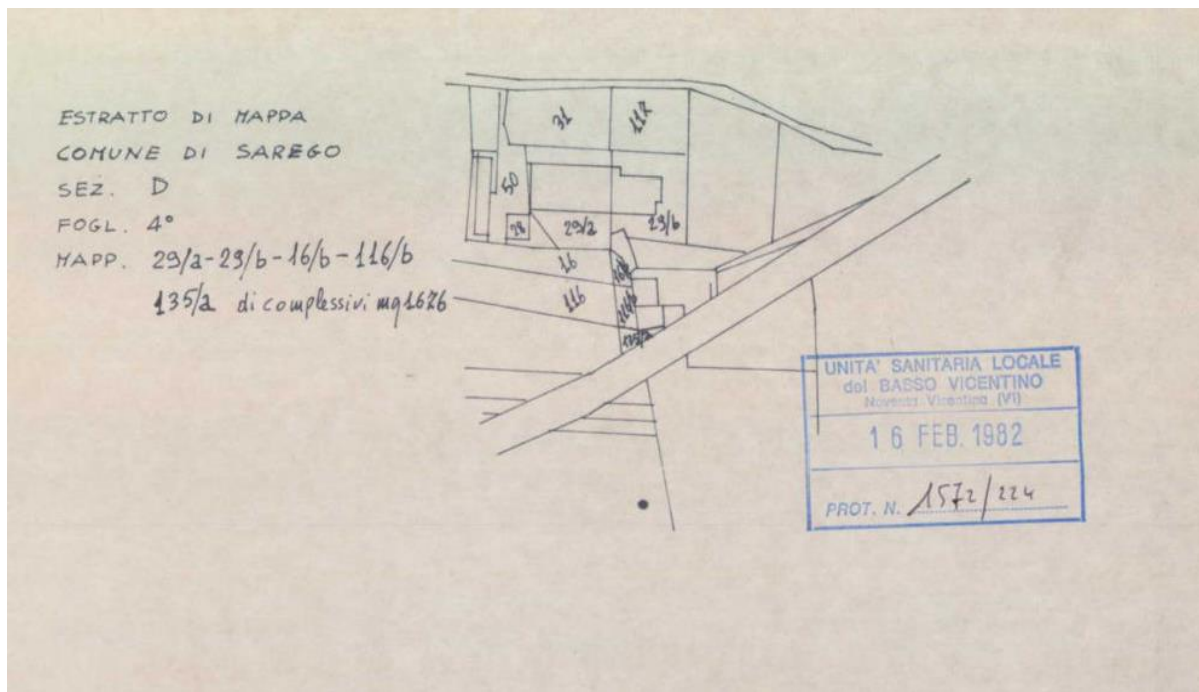 ESTRATTO DI MAPPA
COMUNE DI SAREGO
SEZ. D
FOGL. 4°
MAPP. 29/a-29/b-16/b-116/b
135/a di complessivi mq 1626
31
117
50
28
29/a
29/b
16
16/b
116
116/b
135/a
UNITA' SANITARIA LOCALE
del BASSO VICENTINO
Noventa Vicentina (VI)
16 FEB. 1982
PROT. N. 1572/224